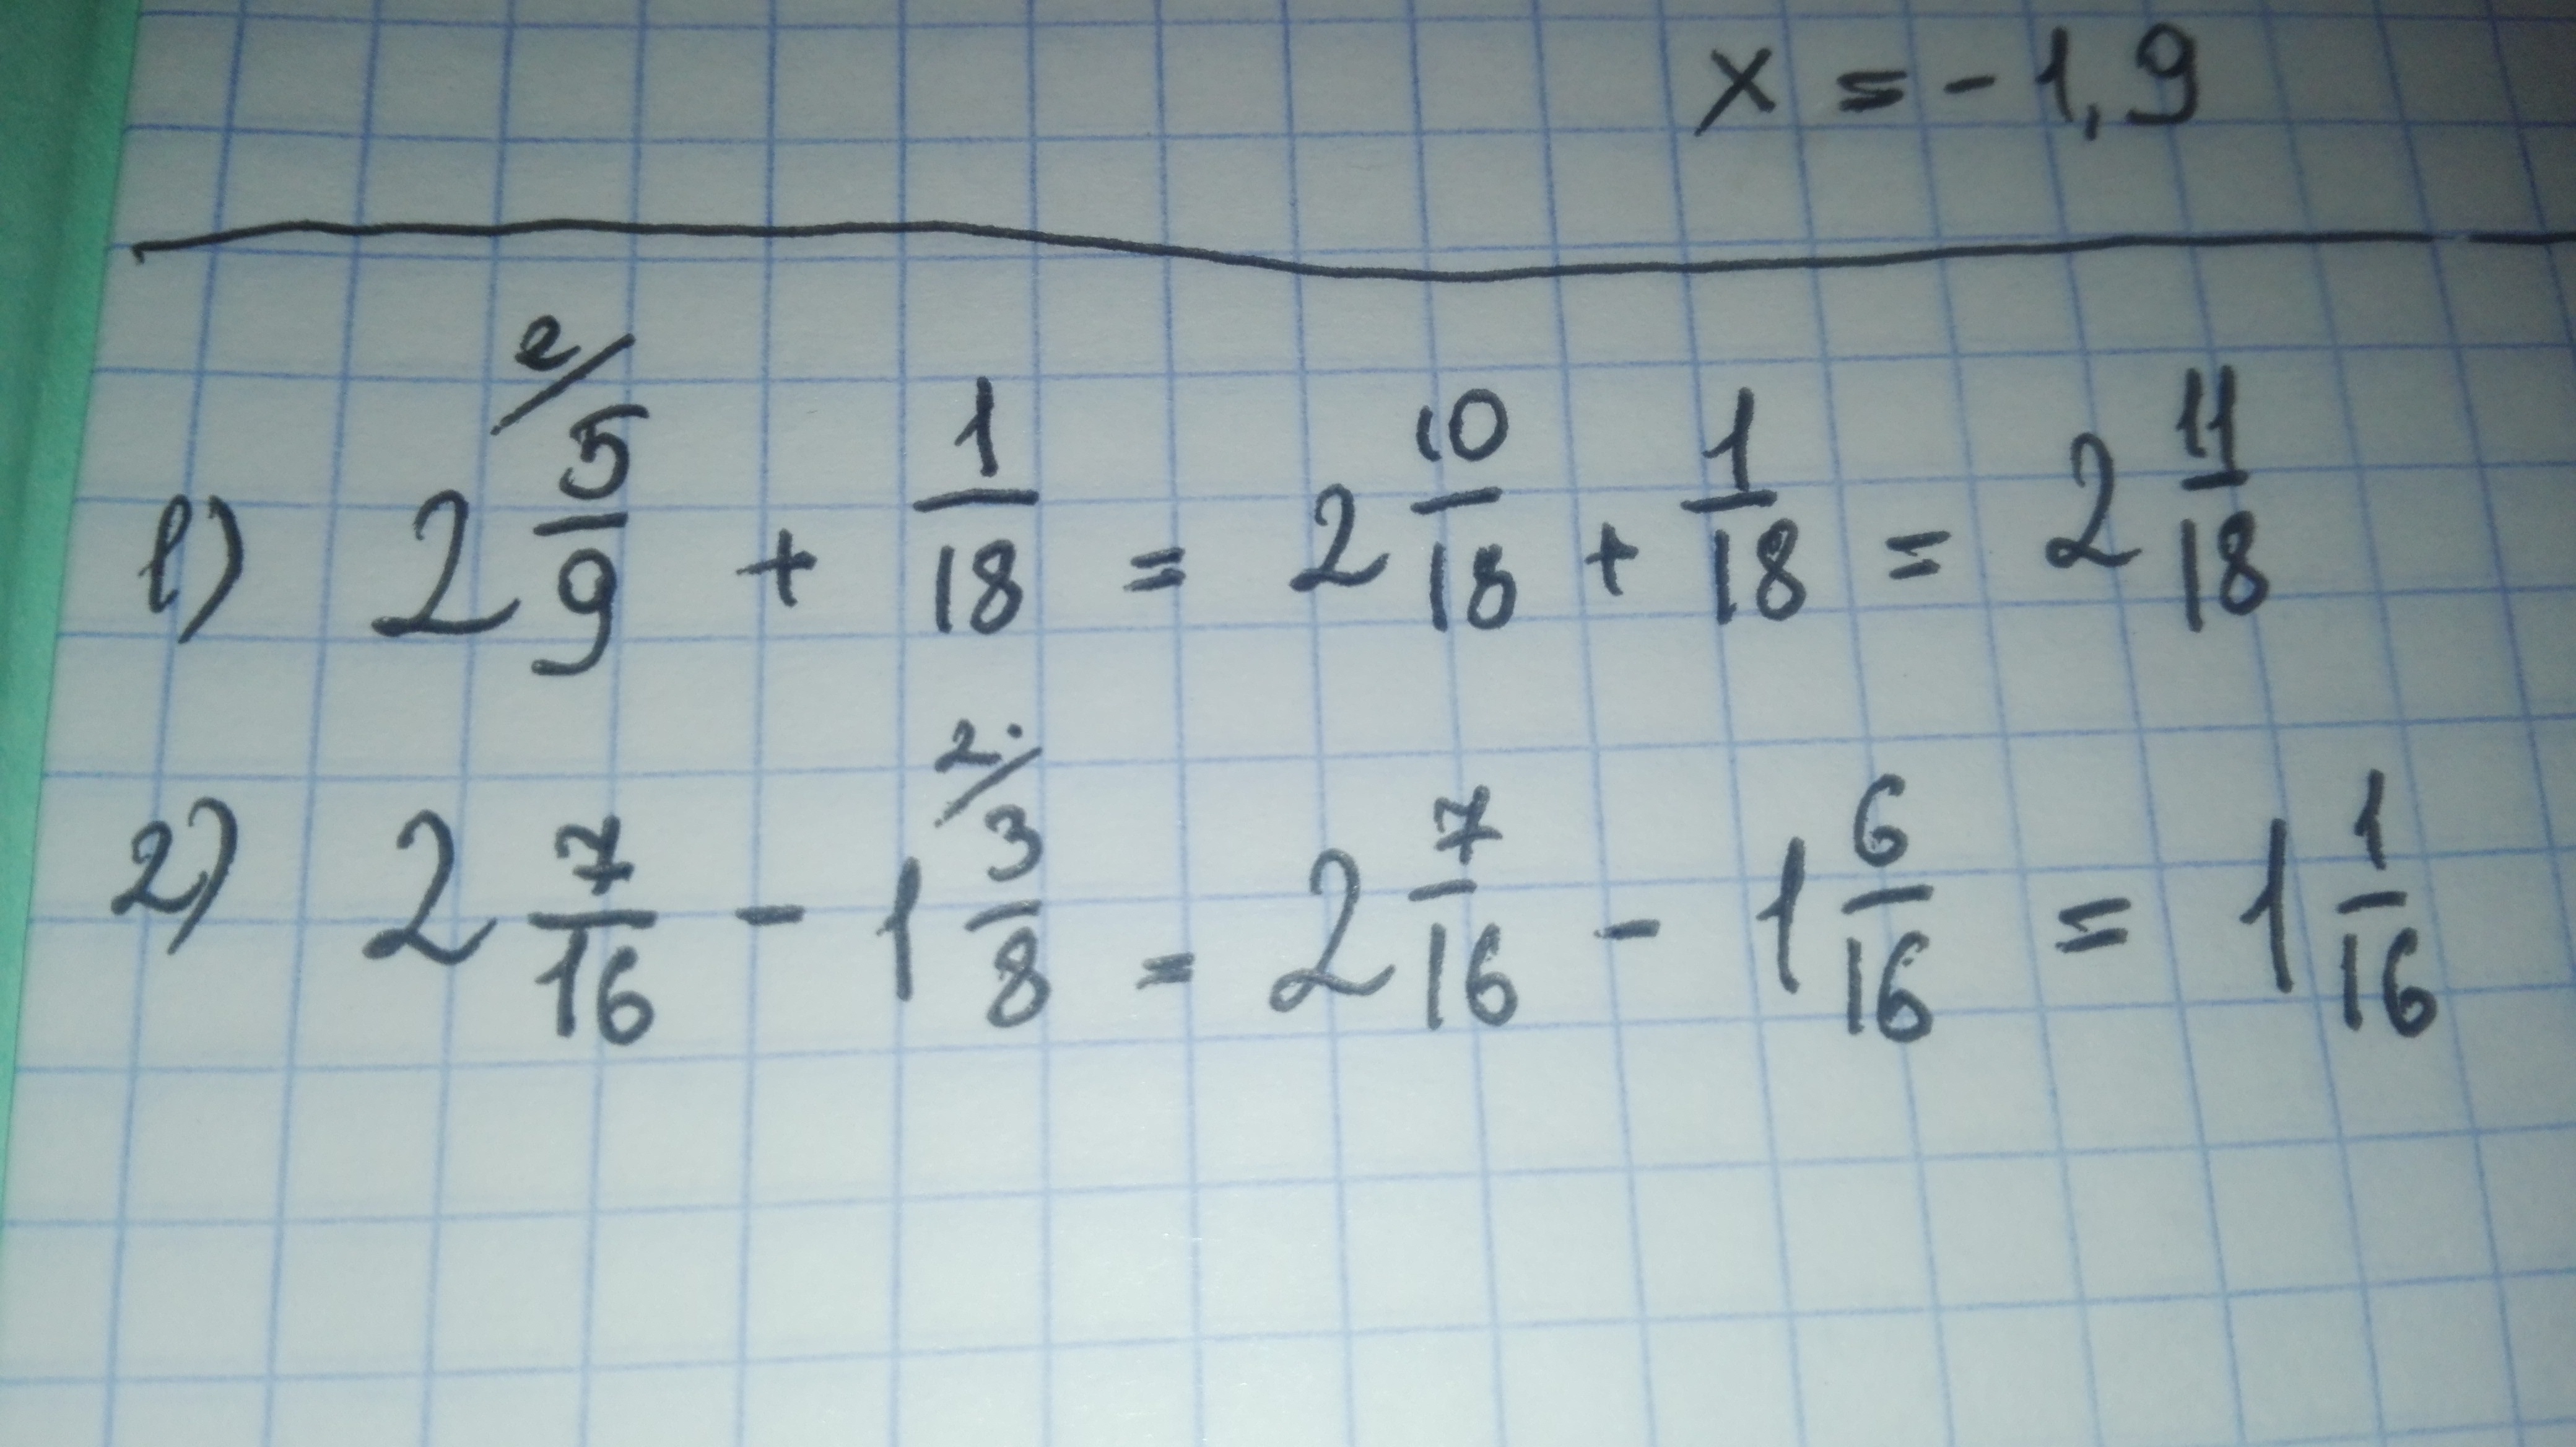 x = - 1,9
1) 2 2/ 5/9 + 1/18 = 2 10/18 + 1/18 = 2 11/18
2) 2 7/16 - 1 2/ 3/8 = 2 7/16 - 1 6/16 = 1 1/16